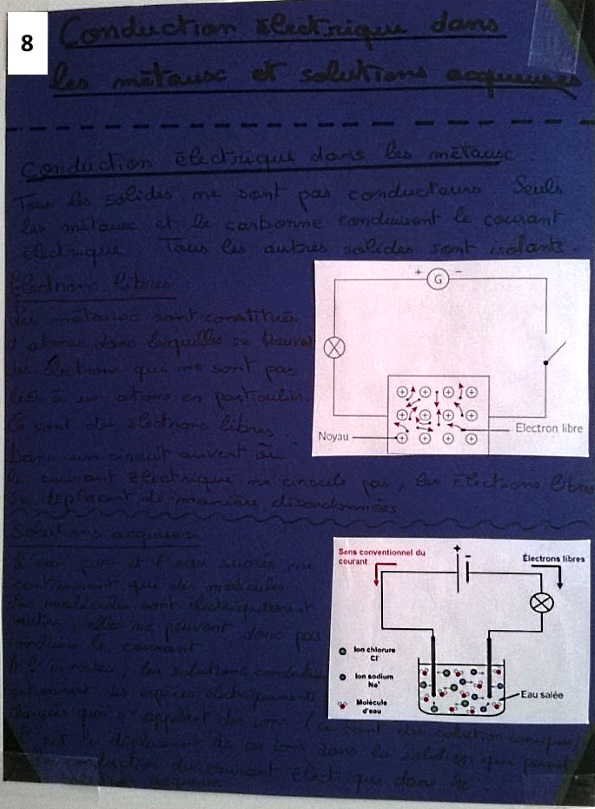 8
Conduction électrique dans
les métausc et solutions acqueuses
Conduction électrique dans les métausc.
Tous les solides ne sont pas conducteurs Seuls
les métausc et le carbonne conduisent le courant
électrique. Tous les autres solides sont isolants.
Electrons libres
Les métausc sont constitués
d'atomes dans lesquelles se trouvent
des électrons qui ne sont pas
liés a un atome en particulier.
Ce sont des électrons libres
Dans un circuit ouvert où
le courant électrique ne circule pas, les électrons libres
se déplacent de manière désordonnées
+ G −
Noyau
Electron libre
Solutions acqueuses
L'eau pure et l'eau sucrée ne
contiennent que des molécules
des molécules sont électriquement
neutre, elles ne peuvent donc pas
conduire le courant
A l'inverse, les solutions
des espèces
chargées que appellent des ions (ce sont des solution ioniques)
C'est le déplacement de ces ions dans la solution qui permet
la conduction du courant électrique dans
Sens conventionnel du
courant
+ -
Électrons libres
Ion chlorure
Cl-
Ion sodium
Na+
Molécule
d'eau
Eau salée